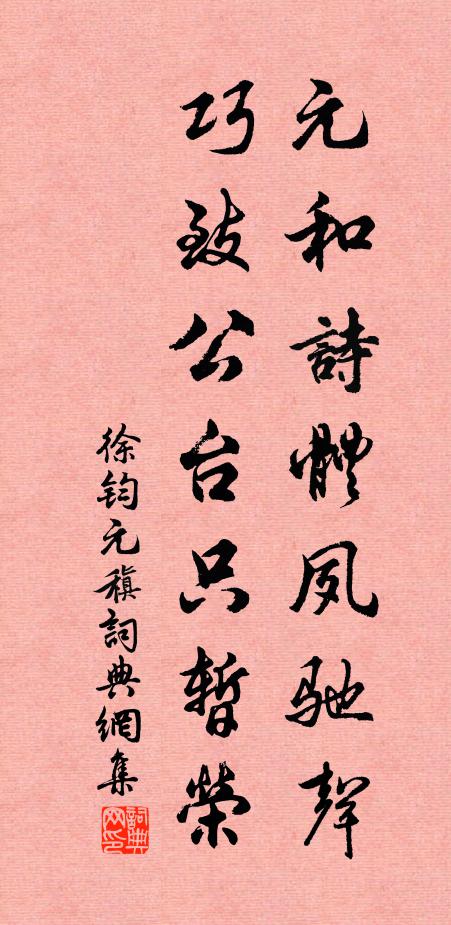 元和詩體夙馳聲
巧致公台只暫榮
徐鈞元稹詞典網集
詞典网印